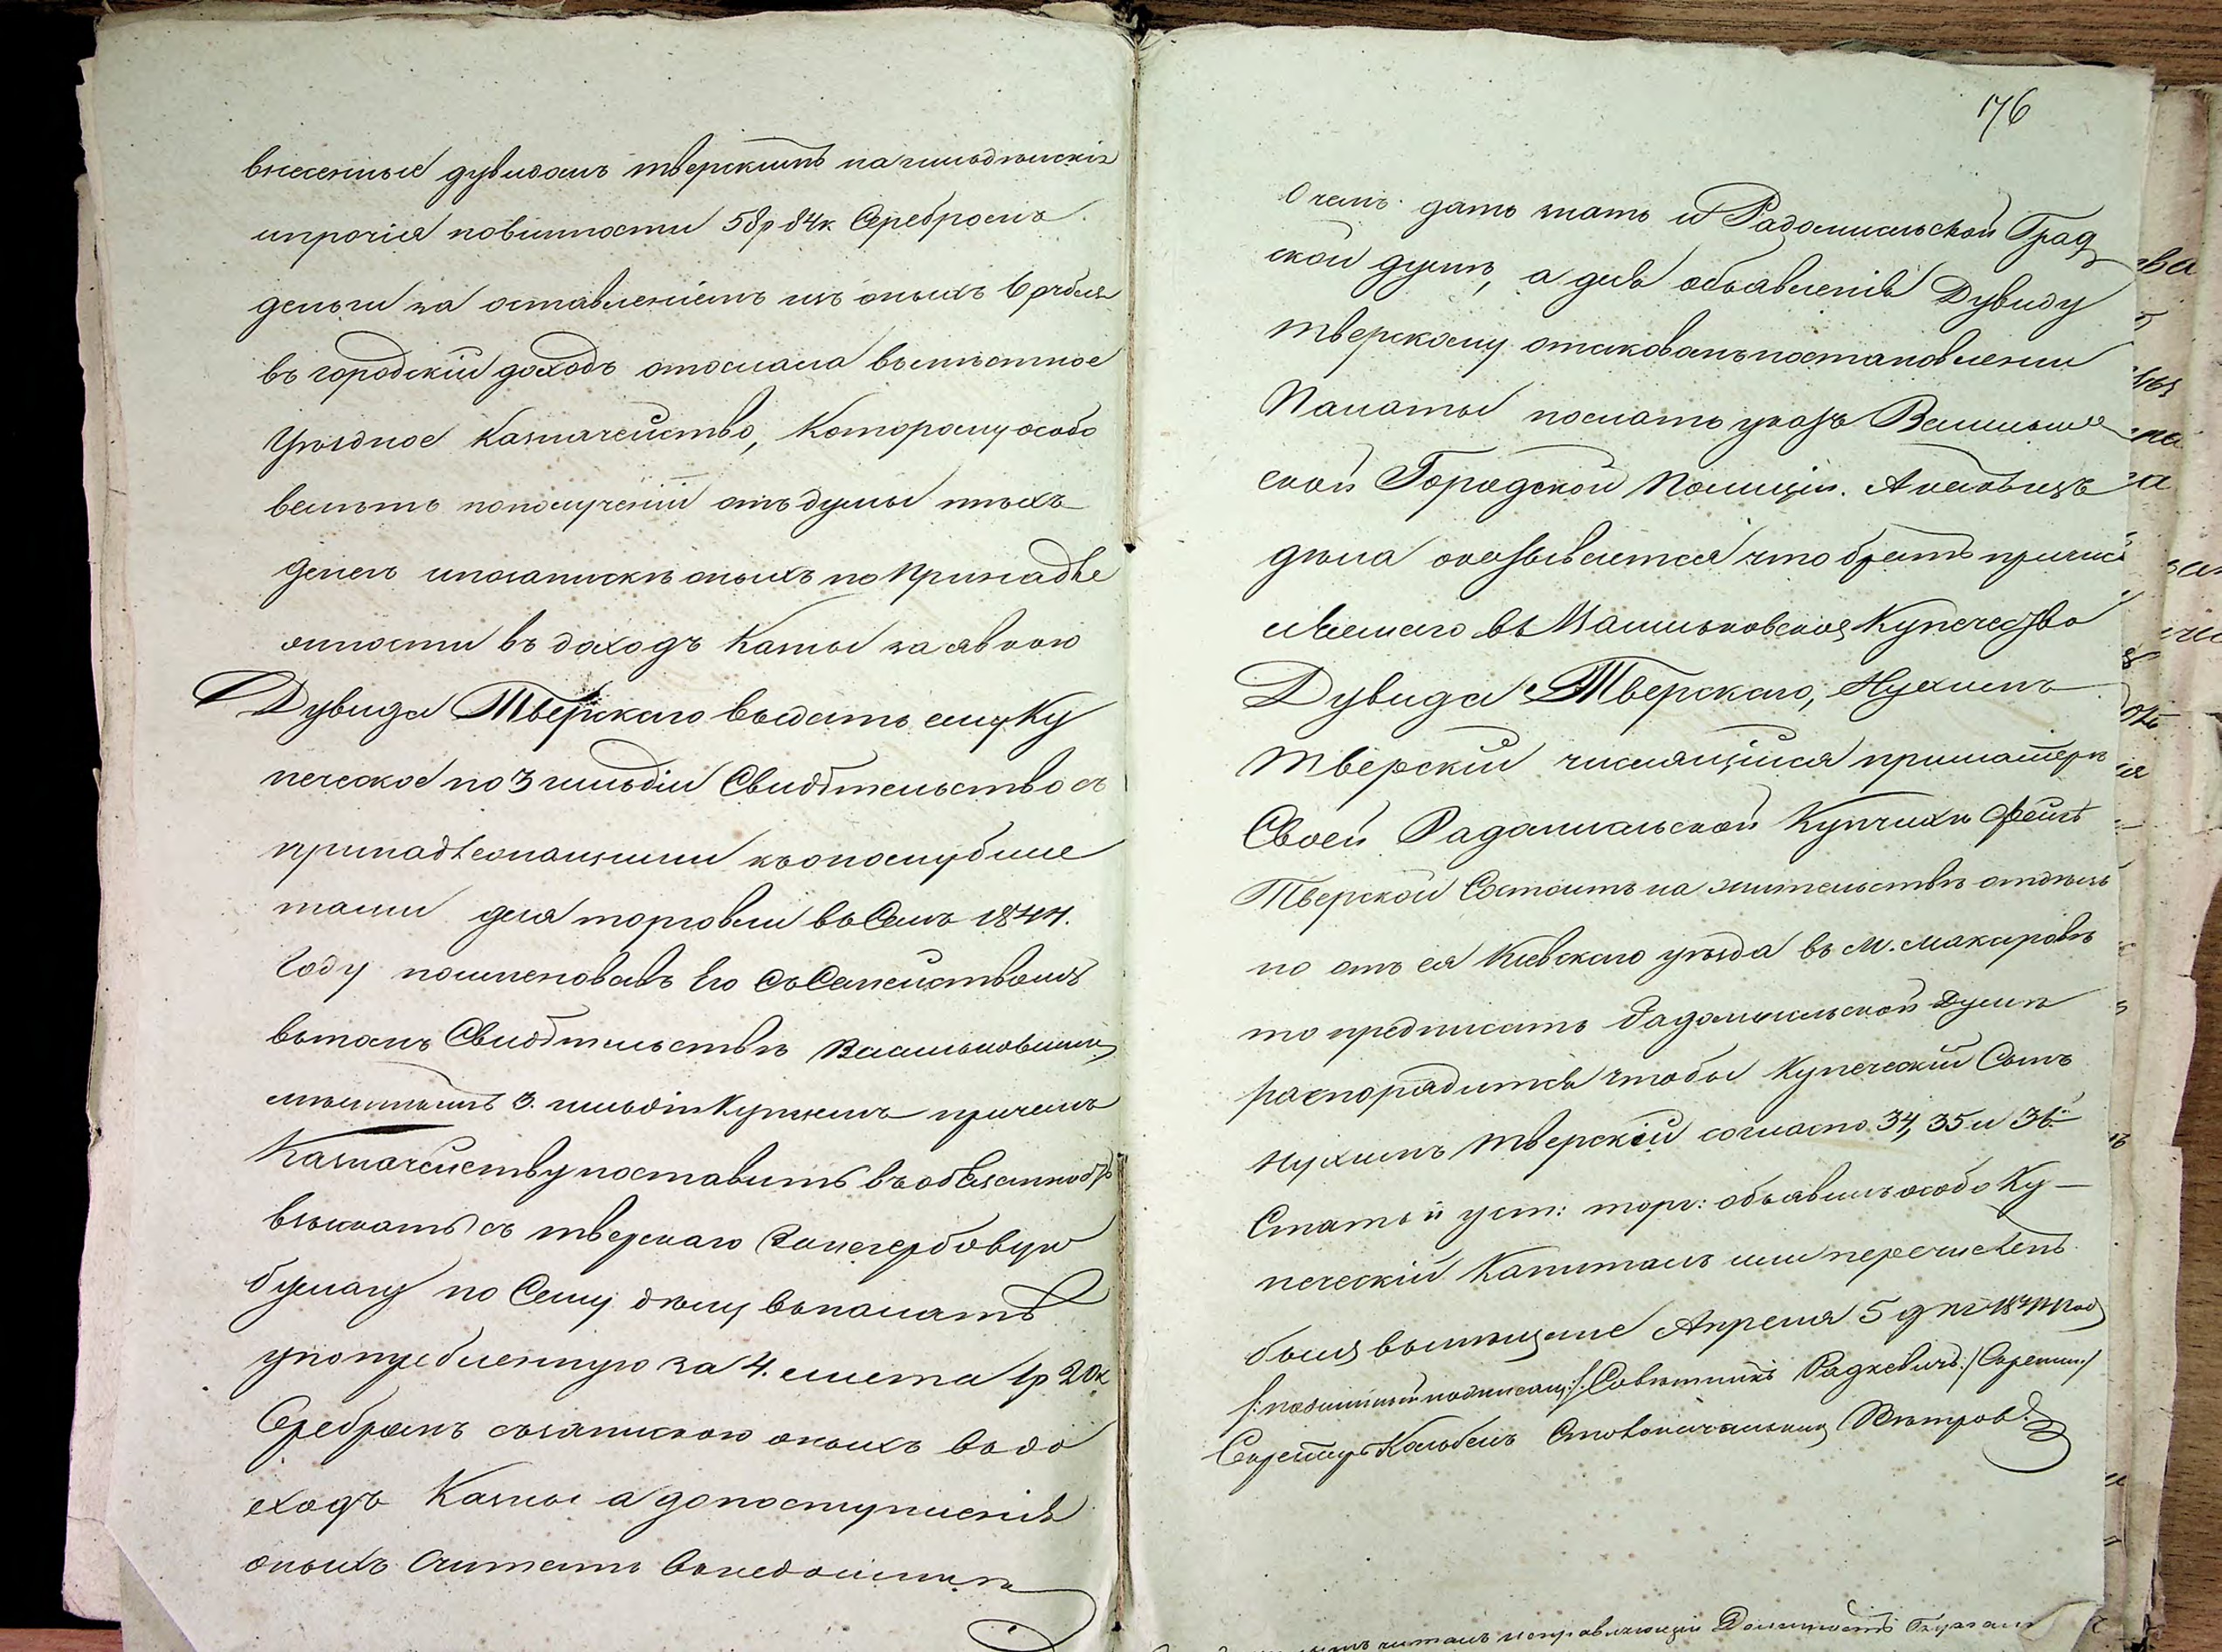 внесенные дувидомъ тверскимъ на гильдейскія
ипрочія повинности 58р 84к Серебромъ
деньги за оставленіемъ изъ оныхъ 6 рубля
въ городскій доходъ отослала вместное
Уездное Казначейство, Которому особо
велеть пополученіи отъ думы техъ
денегъ ипозапискѣ оныхъ по Принадле
жности въ доходъ Казны за явкою
Дувида Тверскаго выдать ему Ку
печеское по 3 гильдіи Свидѣтельство съ
принадлежащими къоному биле
тами для торговли въ Семъ 1844.
Году поименовавъ Его съ Семействомъ
вытомъ Свидѣтельствѣ Васильковскимъ
3. гильдіи Купцемъ причемъ
Казначейству поставить въобязанность
взыскать съ тверскаго Загербовую
бумагу по Сему делу въпалатѣ
употребленную за 4. листа 1р 20к
Серебромъ созапискою оныхъ въ до
ходъ Казны а допоступленія
оныхъ Считать внедоимкѣ
176
О чемъ дать знать и Радомысльской Град
ской думѣ, а для объявленія Дувиду
тверскому отаковомъ постановленіи
Палаты послать указъ Васильков
ской Городской Полиціи. А какъ изъ
дѣла оказывается что братъ причис
ляемаго въ Васильковское Купечество
Дувида Тверскаго, Нухимъ
тверскій числящійся приматерѣ
Своей Радомысльской Купчихѣ Фейгѣ
Тверской Состоитъ на жительствѣ отдель
но отъ ея Кіевскаго уезда въ М. Макаровѣ
то предписать Радомысльской Думѣ
распорядиться чтобы Купеческій Сынъ
Нухимъ тверскій согласно 34, 35 и 36
Статьй уст: торг: объявилъ особо Ку-
печескій Капиталъ или перечисленъ
былъ вмещане Апреля 5 дня 1844 год
/: подлинный подписали :/ Советникъ Радкевичъ /: Скрепили :/
Секретарь Столоначальникъ Петровъ
читалъ исправляющій Должность